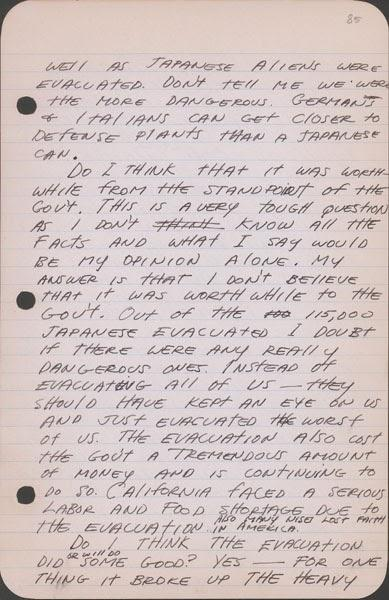 85
WELL AS JAPANESE ALIENS WERE
EVACUATED. DON'T TELL ME WE WERE
THE MORE DANGEROUS. GERMANS
& ITALIANS CAN GET CLOSER TO
DEFENSE PLANTS THAN A JAPANESE
CAN.
DO I THINK THAT IT WAS WORTH-
WHILE FROM THE STANDPOINT OF THE
GOV'T. THIS IS A VERY TOUGH QUESTION
AS I DON'T THINK KNOW ALL THE
FACTS AND WHAT I SAY WOULD
BE MY OPINION ALONE. MY
ANSWER IS THAT I DON'T BELIEVE
THAT IT WAS WORTHWHILE TO THE
GOV'T. OUT OF THE 115,000
JAPANESE EVACUATED I DOUBT
IF THERE WERE ANY REALLY
DANGEROUS ONES. INSTEAD OF
EVACUATING ALL OF US — THEY
SHOULD HAVE KEPT AN EYE ON US
AND JUST EVACUATED THE WORST
OF US. THE EVACUATION ALSO COST
THE GOV'T A TREMENDOUS AMOUNT
OF MONEY AND IS CONTINUING TO
DO SO. CALIFORNIA FACED A SERIOUS
LABOR AND FOOD SHORTAGE DUE TO
THE EVACUATION. ALSO MANY NISEI LOST FAITH
IN AMERICA.
DO I THINK THE EVACUATION
DID OR WILL DO SOME GOOD? YES — FOR ONE
THING IT BROKE UP THE HEAVY